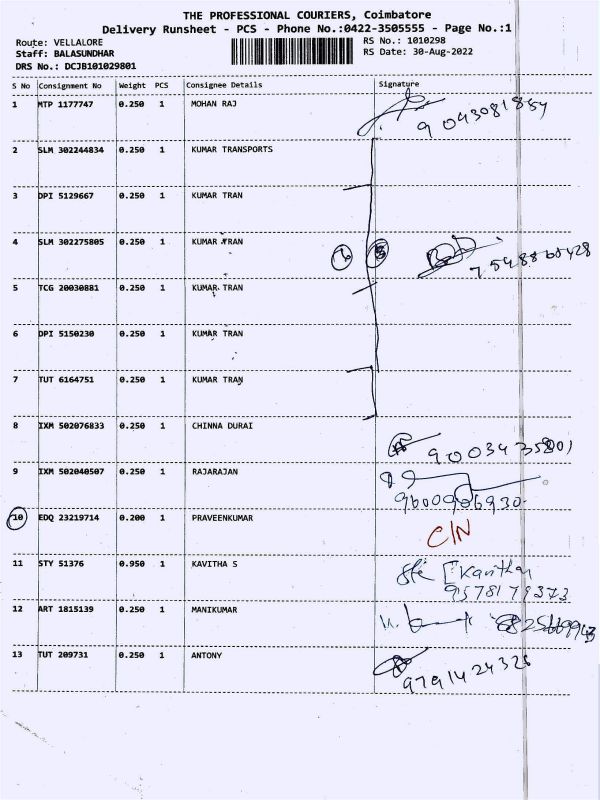 THE PROFESSIONAL COURIERS, Coimbatore
Delivery Runsheet - PCS - Phone No.:0422-3505555 - Page No.:1
Route: VELLALORE
Staff: BALASUNDHAR
DRS No.: DCJB101029801
RS No.: 1010298
RS Date: 30-Aug-2022
S No Consignment No Weight PCS Consignee Details Signature
1 MTP 1177747 0.250 1 MOHAN RAJ
2 SLM 302244834 0.250 1 KUMAR TRANSPORTS
3 DPI 5129667 0.250 1 KUMAR TRAN
4 SLM 302275805 0.250 1 KUMAR TRAN
5 TCG 20030881 0.250 1 KUMAR TRAN
6 DPI 5150230 0.250 1 KUMAR TRAN
7 TUT 6164751 0.250 1 KUMAR TRAN
8 IXM 502076833 0.250 1 CHINNA DURAI
9 IXM 502040507 0.250 1 RAJARAJAN 9600906930
10 EDQ 23219714 0.200 1 PRAVEENKUMAR C/N
11 STY 51376 0.950 1 KAVITHA S 9578179373
12 ART 1815139 0.250 1 MANIKUMAR
13 TUT 209731 0.250 1 ANTONY 9791424326